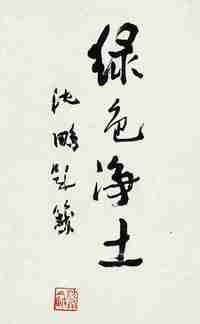 绿色净土
沈鹏题签